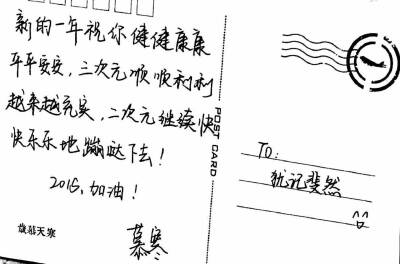 新的一年祝你健健康康
平平安安，三次元顺顺利利
越来越充实，二次元继续快
快乐乐地蹦哒下去！
2015，加油！
慕寒
歲暮天寒
POST CARD
TO:
犹记斐然